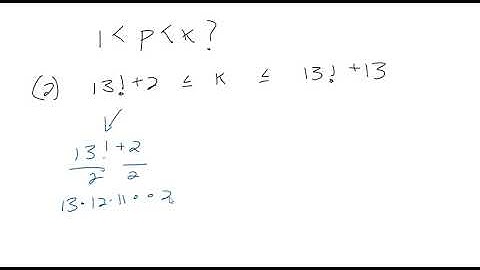 1 < p < k ?
(2) 13! + 2 ≤ k ≤ 13! + 13
13! + 2
2 2
13 · 12 · 11 · · 2